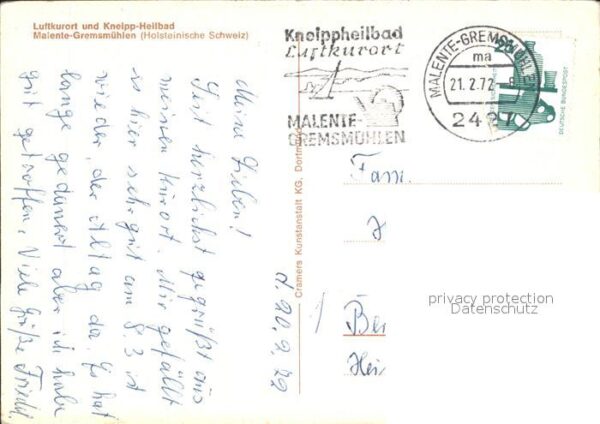 Luftkurort und Kneipp-Heilbad
Malente-Gremsmühlen (Holsteinische Schweiz)
Kneippheilbad
Luftkurort
MALENTE-
GREMSMÜHLEN
MALENTE-GREMSMÜHLEN
ma
21.2.72-8
2427
20
DEUTSCHE BUNDESPOST
d. 20.2.72
Meine Lieben!
Seid herzlichst gegrüßt aus
meinem Kurort. Mir gefällt
es hier sehr gut am 8.3 ist
wieder der Alltag da. Es hat
lange gedauert aber ich habe
gut getroffen, Viele Grüße Friedel
Cramers Kunstanstalt KG, Dortmund
Fam.
J
Ber
Hei
privacy protection
Datenschutz